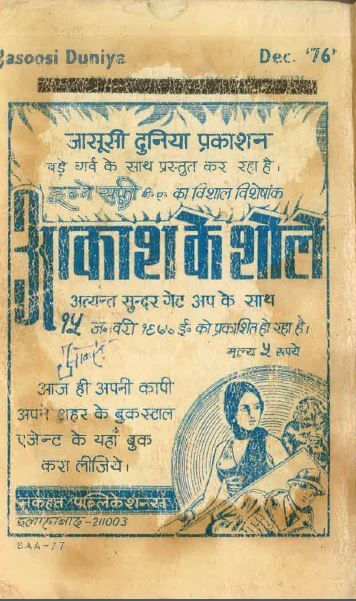 Jasoosi Duniya Dec. '76'
जासूसी दुनिया प्रकाशन
बड़े गर्व के साथ प्रस्तुत कर रहा है।
इब्ने सफ़ी बी.ए. का विशाल विशेषांक
आकाश के शोले
अत्यन्त सुन्दर गेट अप के साथ
१५ जनवरी को प्रकाशित हो रहा है।
मूल्य ५ रुपये
आज ही अपनी कापी
अपने शहर के बुकस्टाल
एजेन्ट के यहाँ बुक
करा लीजिये।
पब्लिकेशन्स
इलाहाबाद-211003